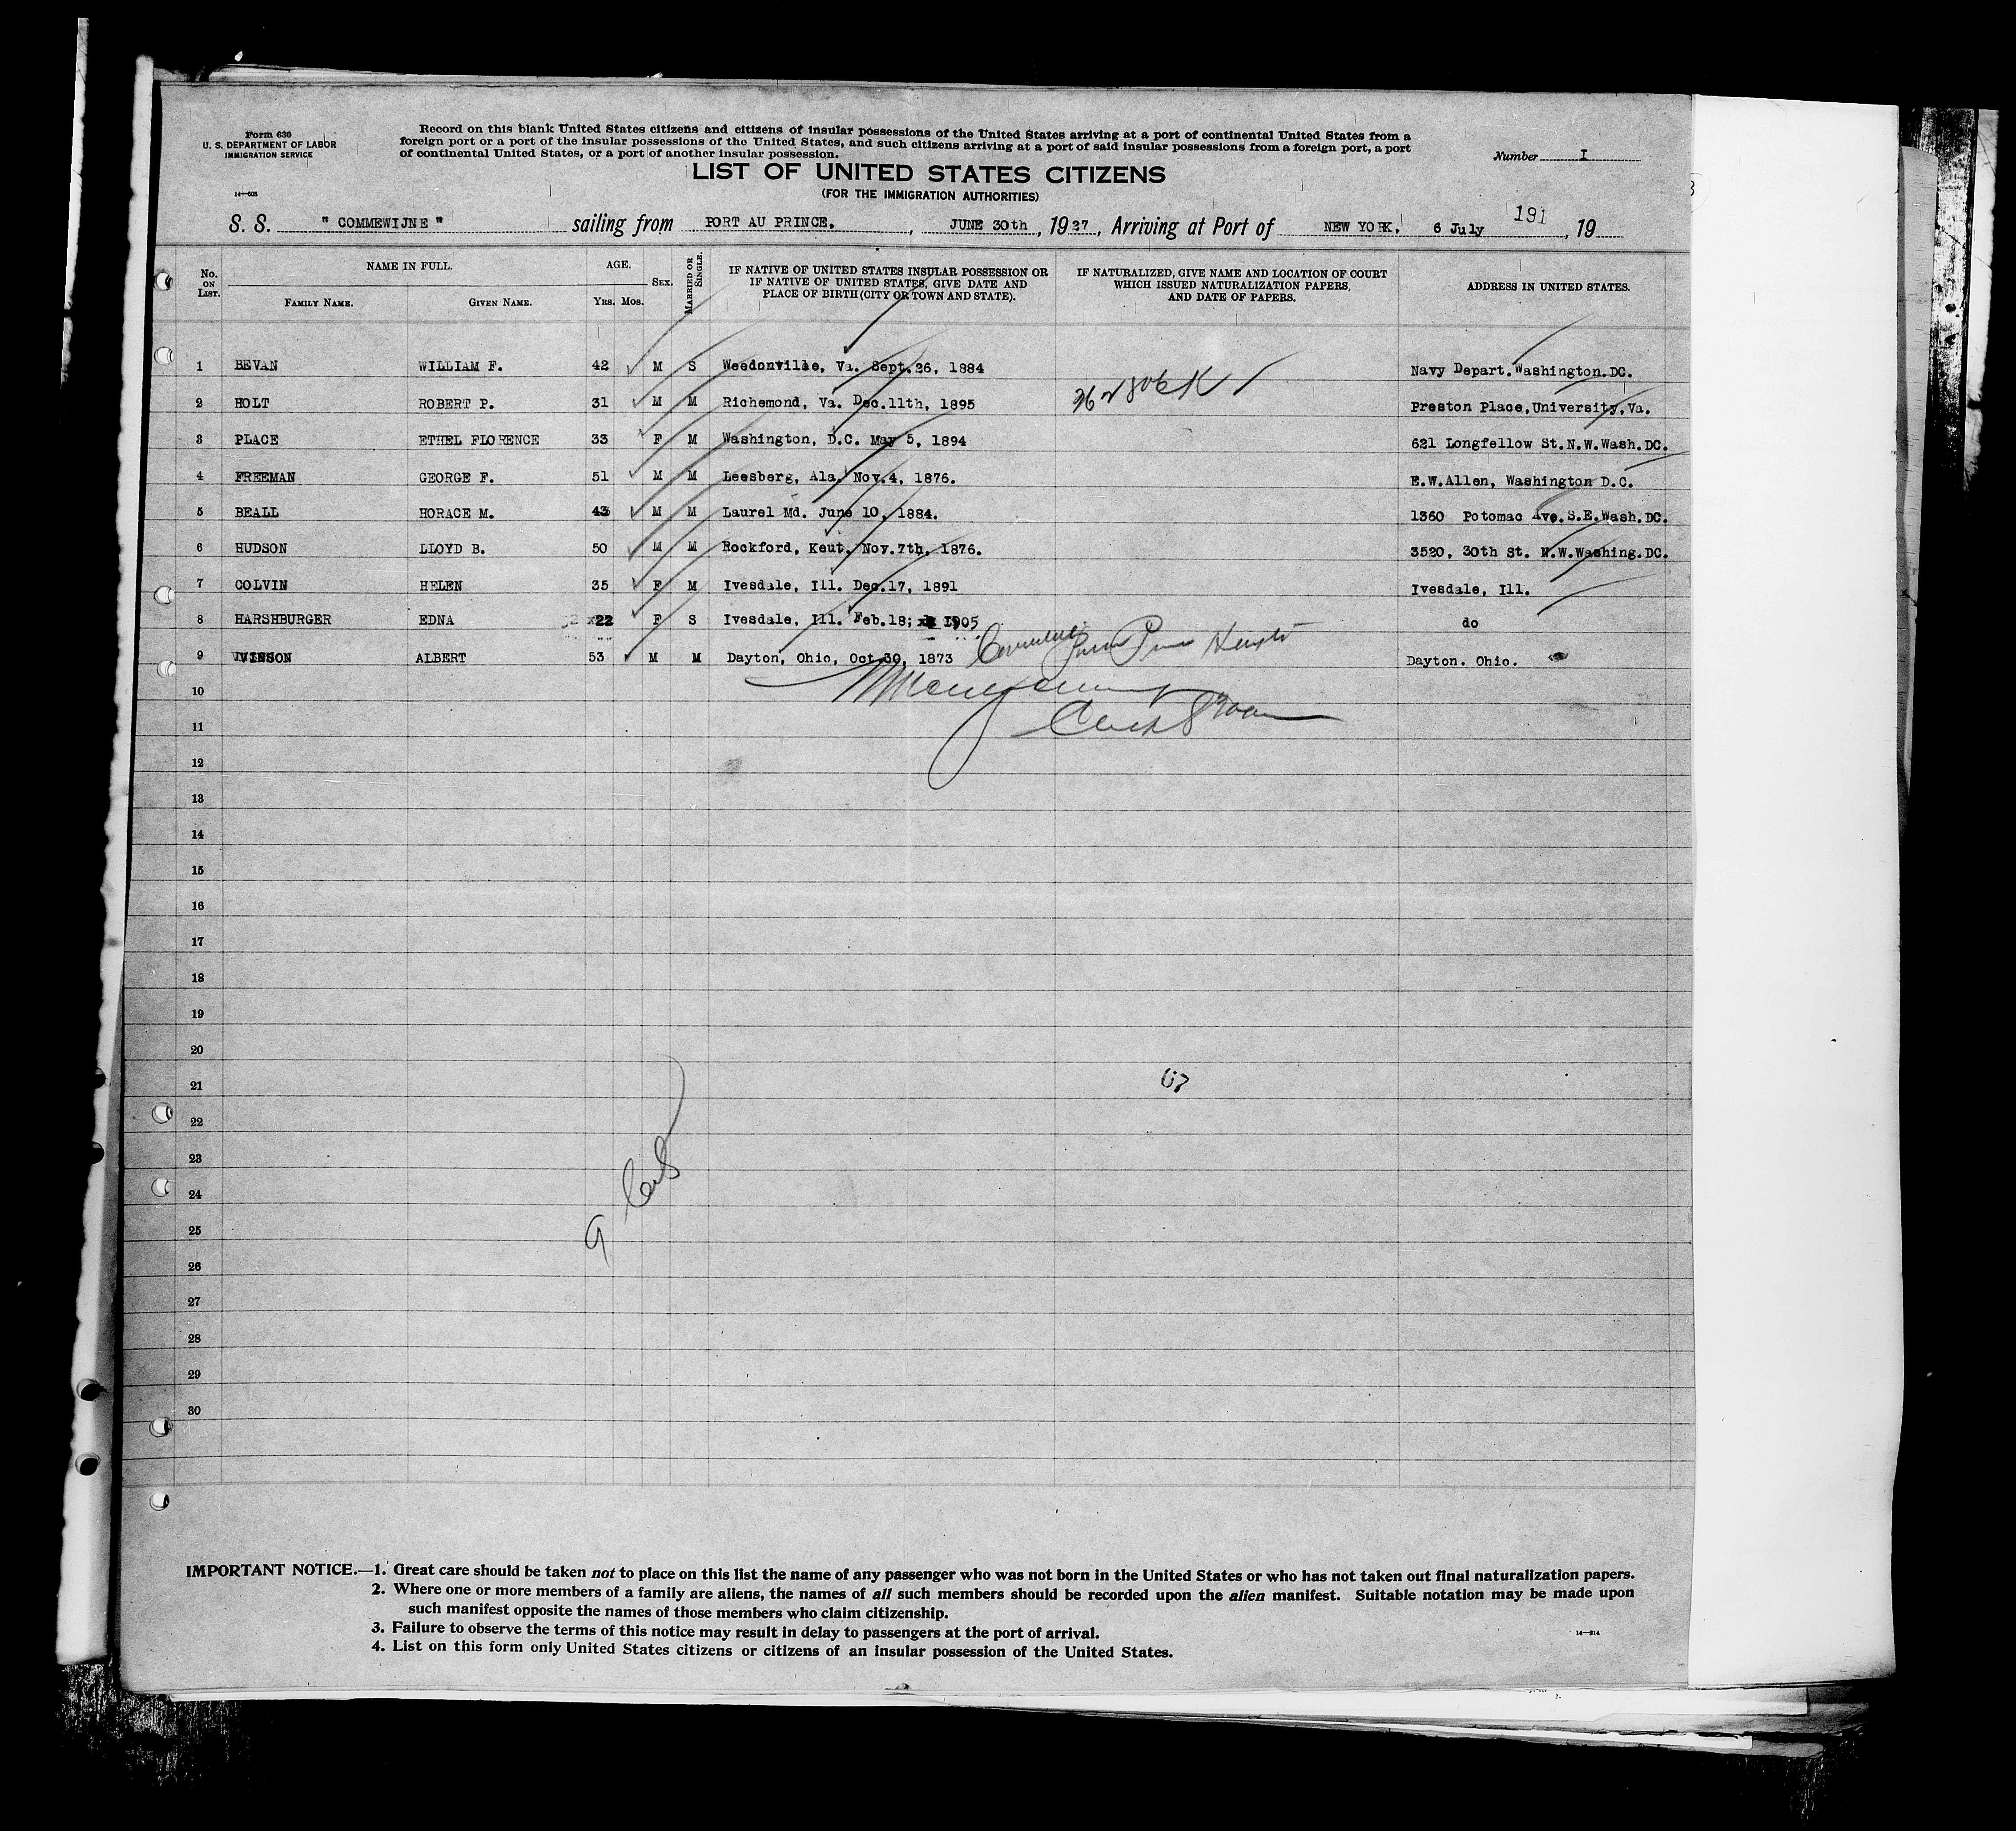 Form 630
U. S. DEPARTMENT OF LABOR
IMMIGRATION SERVICE
14—608
Record on this blank United States citizens and citizens of insular possessions of the United States arriving at a port of continental United States from a
foreign port or a port of the insular possessions of the United States, and such citizens arriving at a port of said insular possessions from a foreign port, a port
of continental United States, or a port of another insular possession.
Number I
LIST OF UNITED STATES CITIZENS
(FOR THE IMMIGRATION AUTHORITIES)
191
S. S. " COMMEWIJNE " sailing from PORT AU PRINCE. , JUNE 30th , 1927 , Arriving at Port of NEW YORK. 6 July , 19
No. ON LIST. NAME IN FULL. FAMILY NAME. GIVEN NAME. AGE. YRS. MOS. SEX. MARRIED OR SINGLE. IF NATIVE OF UNITED STATES INSULAR POSSESSION OR IF NATIVE OF UNITED STATES, GIVE DATE AND PLACE OF BIRTH (CITY OR TOWN AND STATE). IF NATURALIZED, GIVE NAME AND LOCATION OF COURT WHICH ISSUED NATURALIZATION PAPERS, AND DATE OF PAPERS. ADDRESS IN UNITED STATES.
1 BEVAN WILLIAM F. 42 M S Weedonville, Va. Sept.26, 1884 Navy Depart.Washington.DC.
2 HOLT ROBERT P. 31 M M Richemond, Va. Dec.11th, 1895 Preston Place,University,Va.
3 PLACE ETHEL FLORENCE 33 F M Washington, D.C. May 5, 1894 621 Longfellow St.N.W.Wash.DC.
4 FREEMAN GEORGE F. 51 M M Leesberg, Ala. Nov.4, 1876. E.W.Allen, Washington D.C.
5 BEALL HORACE M. 43 M M Laurel Md. June 10, 1884. 1360 Potomac Ave.S.E.Wash.DC.
6 HUDSON LLOYD B. 50 M M Rockford, Keut. Nov.7th, 1876. 3520, 30th St. N.W.Washing.DC.
7 COLVIN HELEN 35 F M Ivesdale, Ill. Dec.17, 1891 Ivesdale, Ill.
8 HARSHBURGER EDNA 22 F S Ivesdale, Ill. Feb.18; 1905 do
9 VINSON ALBERT 53 M M Dayton, Ohio, Oct.30, 1873 Dayton. Ohio.
10
11
12
13
14
15
16
17
18
19
20
21
22
23
24
25
26
27
28
29
30
IMPORTANT NOTICE.—1. Great care should be taken not to place on this list the name of any passenger who was not born in the United States or who has not taken out final naturalization papers.
2. Where one or more members of a family are aliens, the names of all such members should be recorded upon the alien manifest. Suitable notation may be made upon
such manifest opposite the names of those members who claim citizenship.
3. Failure to observe the terms of this notice may result in delay to passengers at the port of arrival.
4. List on this form only United States citizens or citizens of an insular possession of the United States.
14—214